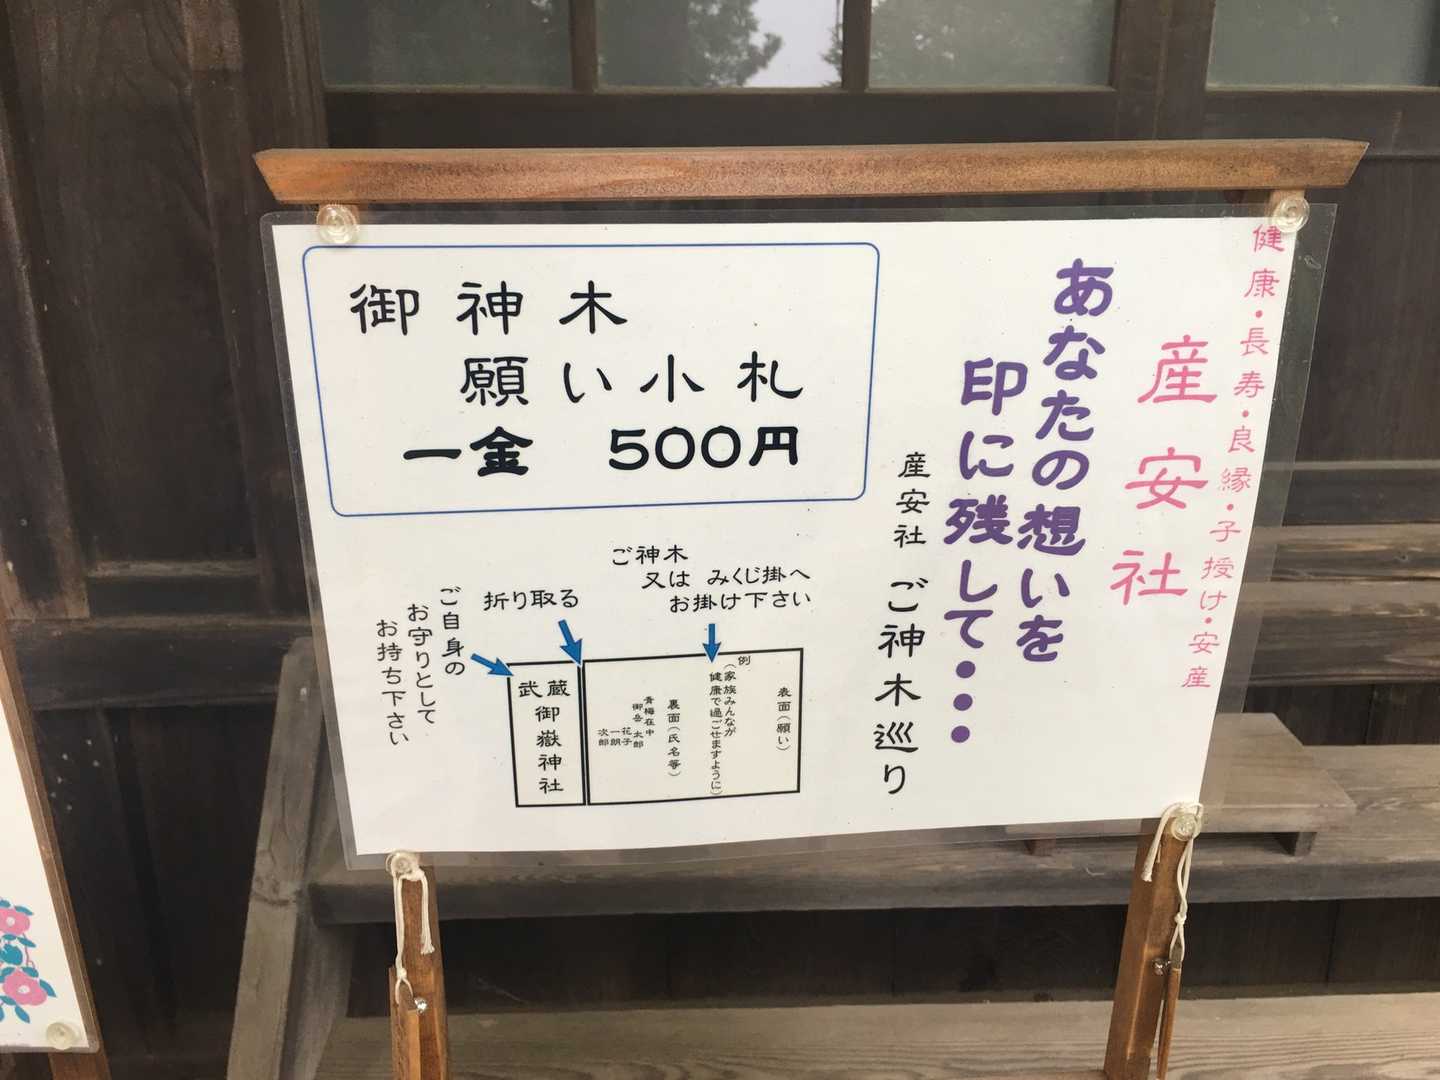 健康・長寿・良縁・子授け・安産
産安社
あなたの想いを
印に残して・・・
産安社 ご神木巡り
御神木
願い小札
一金 500円
ご神木
又は みくじ掛へ
お掛け下さい
折り取る
ご自身の
お守りとして
お持ち下さい
表面(願い)
例
(家族みんなが
健康で過ごせますように)
裏面(氏名等)
青梅在中
御岳 太郎
花子
一朗
次郎
武蔵
御嶽神社